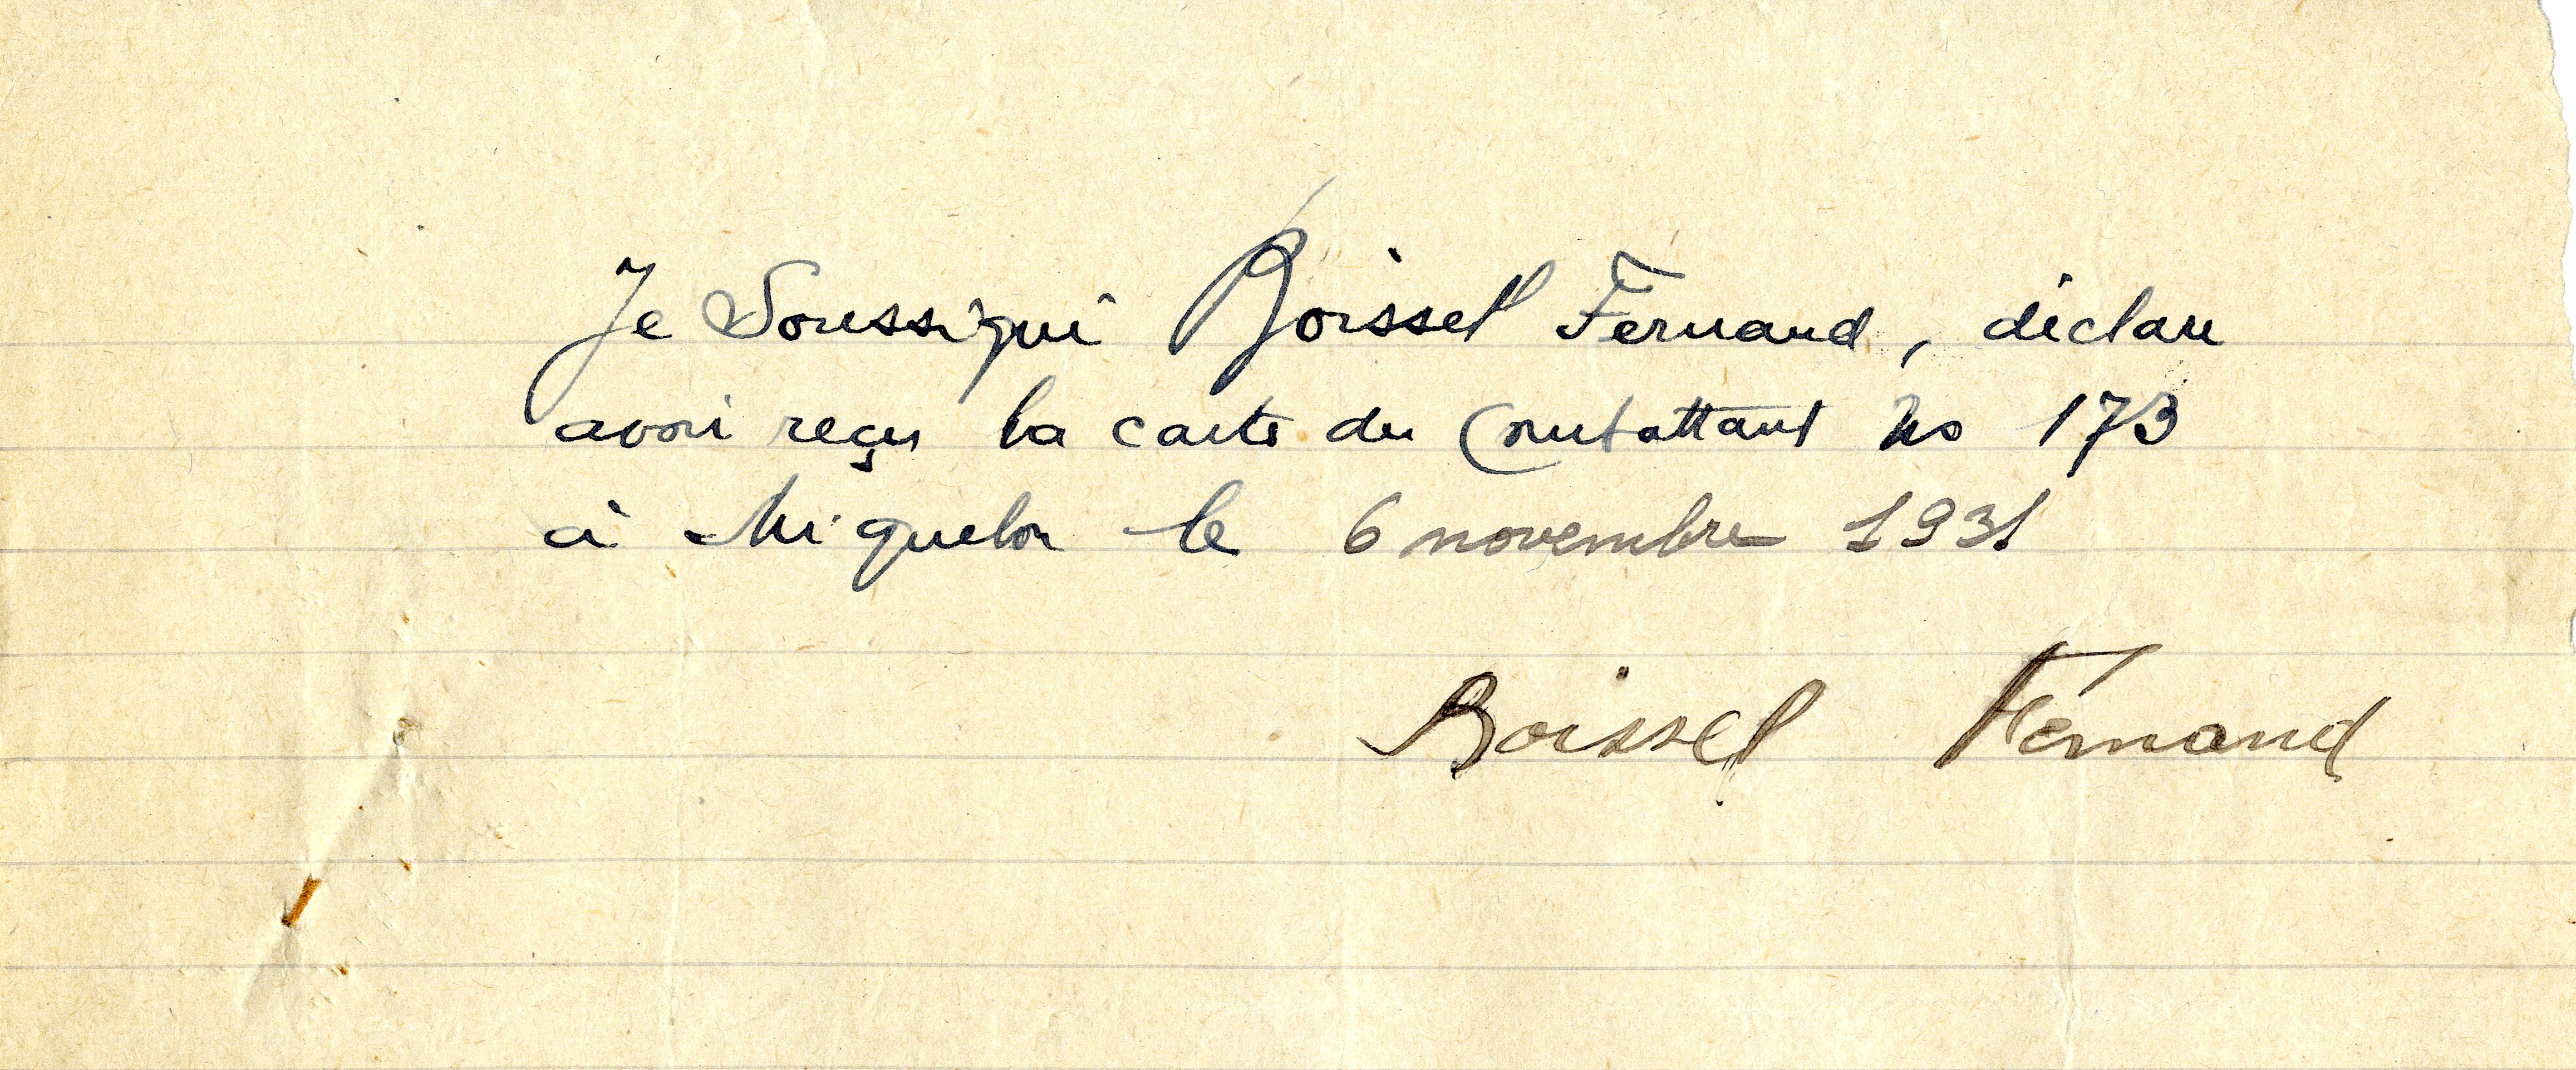 Je Soussigné Boissel Fernand, déclare
avoir reçu la carte du Combattant No 173
à Miquelon le 6 novembre 1931
Boissel Fernand